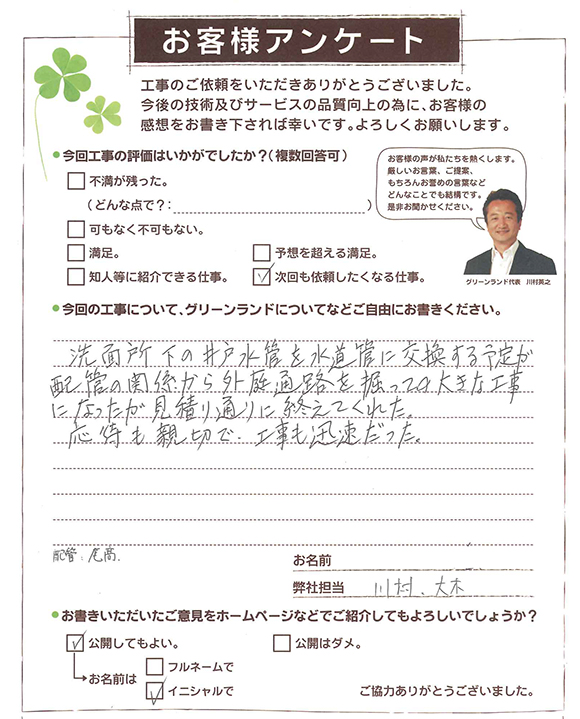 お客様アンケート
工事のご依頼をいただきありがとうございました。
今後の技術及びサービスの品質向上の為に、お客様の
感想をお書き下されば幸いです。よろしくお願いします。
●今回工事の評価はいかがでしたか?(複数回答可)
お客様の声が私たちを熱くします。
厳しいお言葉、ご提案、
もちろんお誉めの言葉など
どんなことでも結構です。
是非お聞かせください。
グリーンランド代表 川村英之
□不満が残った。
(どんな点で?: )
□可もなく不可もない。
□満足。 □予想を超える満足。
□知人等に紹介できる仕事。 ☑次回も依頼したくなる仕事。
●今回の工事について、グリーンランドについてなどご自由にお書きください。
洗面所下の井戸水管を水道管に交換する予定が
配管の関係から外庭通路を掘っての大きな工事
になったが見積り通りに終えてくれた。
応待も親切で工事も迅速だった。
配管:尾高.
お名前
弊社担当 川村、大木
●お書きいただいたご意見をホームページなどでご紹介してもよろしいでしょうか?
☑公開してもよい。 □公開はダメ。
お名前は □フルネームで
☑イニシャルで
ご協力ありがとうございました。